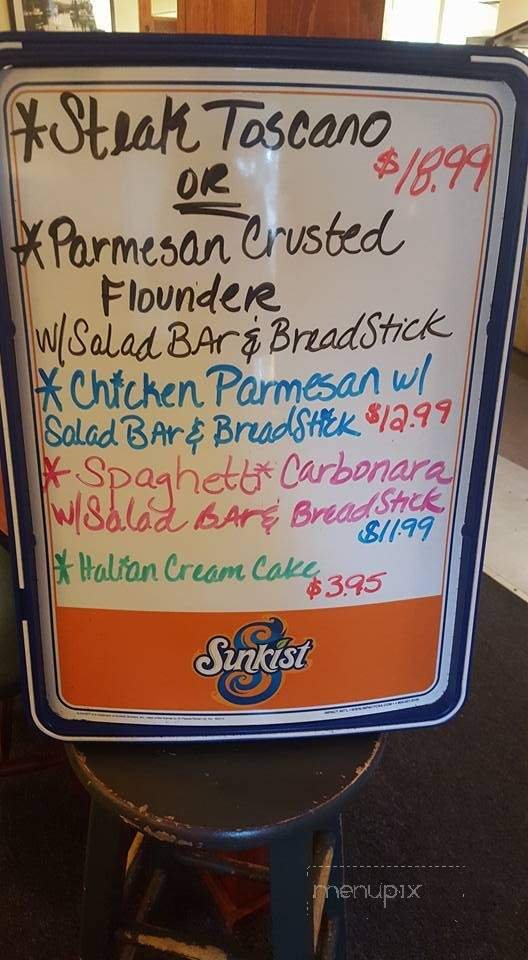 *Steak Toscano
$18.99
OR
*Parmesan Crusted
Flounder
w/Salad BAr & BreadStick
*Chicken Parmesan w/
Salad BAr & BreadStick $12.99
*Spaghetti Carbonara
w/Salad BAr & BreadStick
$11.99
*Italian Cream Cake
$3.95
Sunkist
menupix